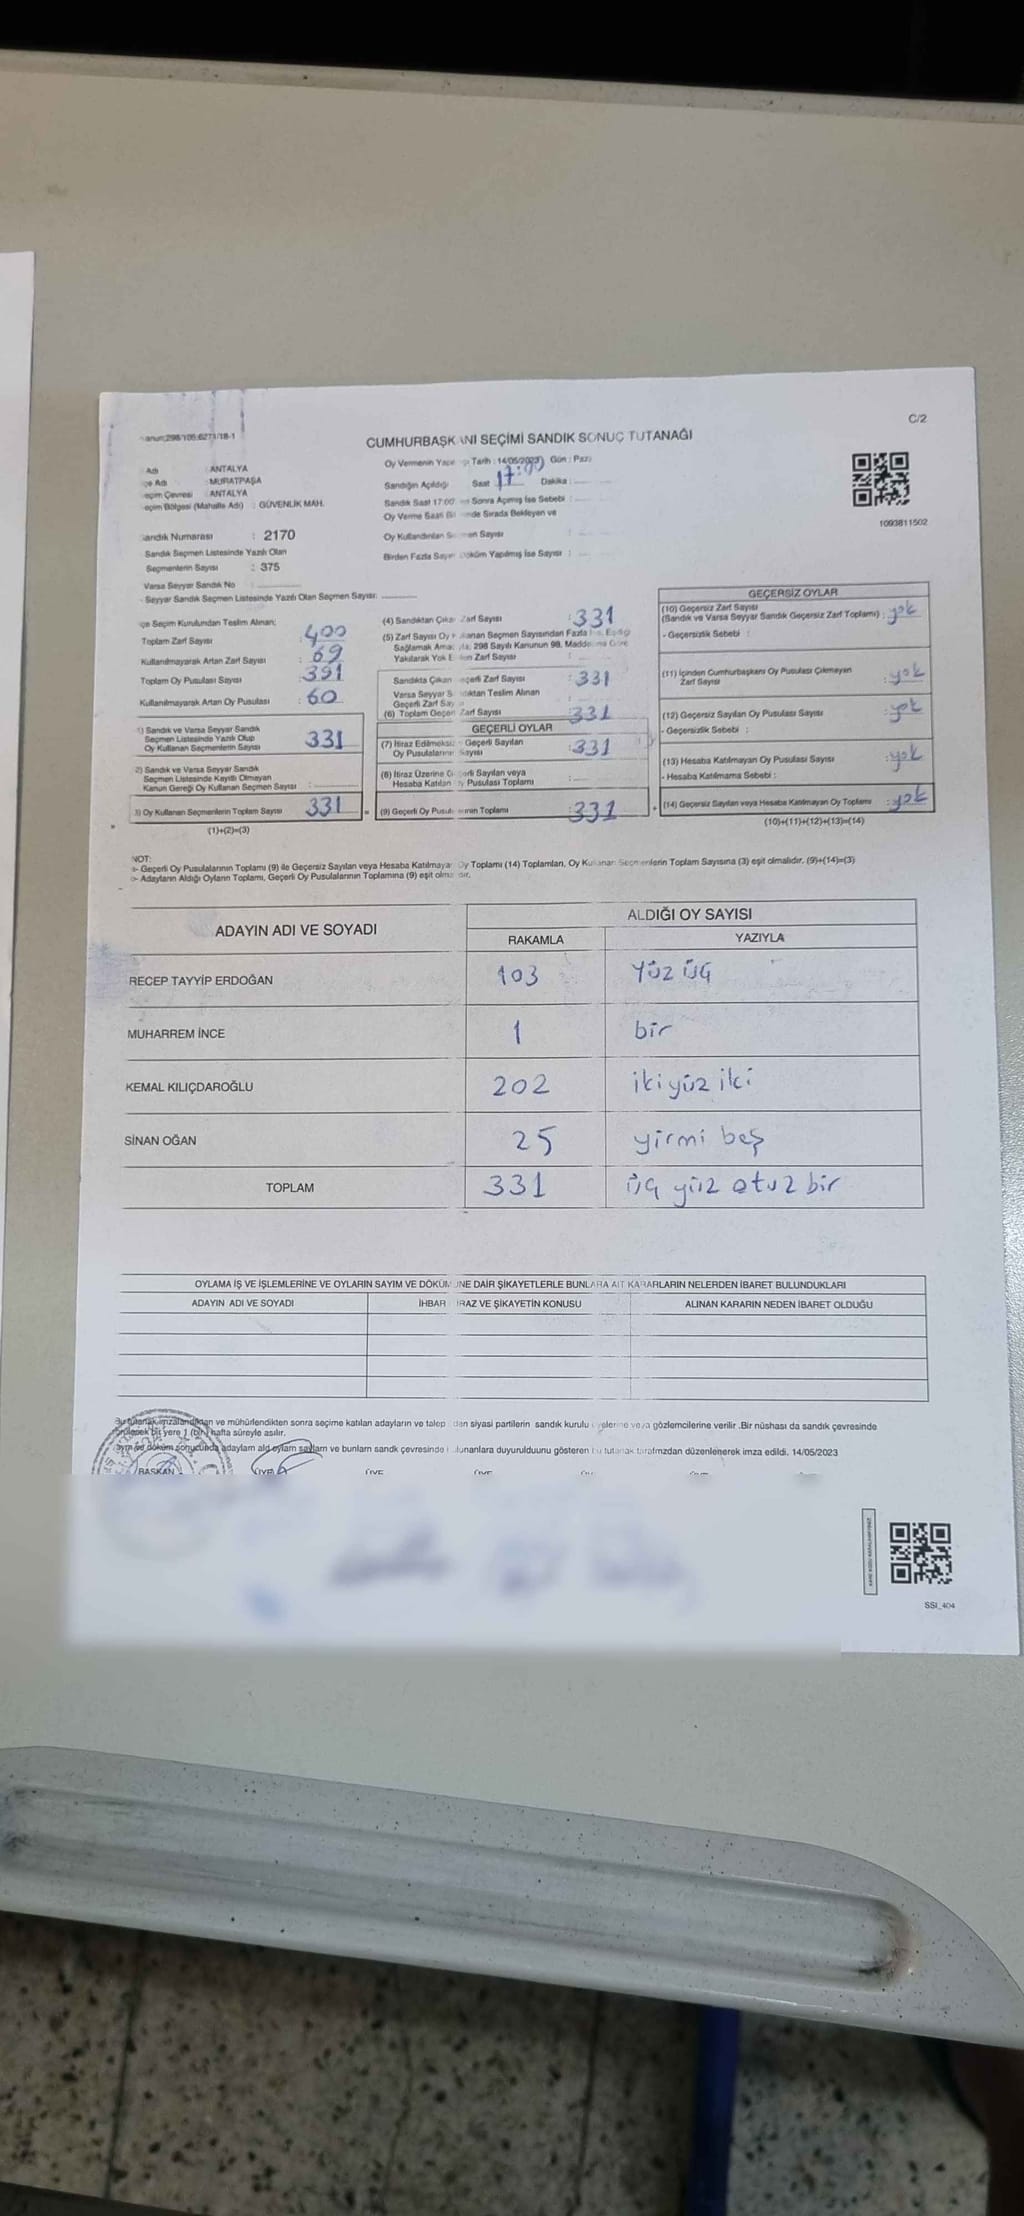 C/2
CUMHURBAŞKANI SEÇİMİ SANDIK SONUÇ TUTANAĞI
Adı : ANTALYA
Adı : MURATPAŞA
Seçim Çevresi : ANTALYA
Seçim Bölgesi (Mahalle Adı) : GÜVENLİK MAH.
Sandık Numarası : 2170
Sandık Seçmen Listesinde Yazılı Olan
Seçmenlerin Sayısı : 375
Varsa Seyyar Sandık No
- Seyyar Sandık Seçmen Listesinde Yazılı Olan Seçmen Sayısı:
Oy Vermenin Tarih : 14/05/2023 Gün :
Sandığın Açıldığı Saat 17:00 Dakika :
Sandık Saat 17:00 Sonra Açımış İse Sebebi :
Oy Verme Saati Sırada Bekleyen ve
Oy Kullandırılan Sayısı :
Birden Fazla Döküm Yapılmış İse Sayısı :
1093811502
Seçim Kurulundan Teslim Alınan;
Toplam Zarf Sayısı : 400
Kullanılmayarak Artan Zarf Sayısı : 69
Toplam Oy Pusulası Sayısı : 391
Kullanılmayarak Artan Oy Pusulası : 60
1) Sandık ve Varsa Seyyar Sandık
Seçmen Listesinde Yazılı Olup
Oy Kullanan Seçmenlerin Sayısı : 331
2) Sandık ve Varsa Seyyar Sandık
Seçmen Listesinde Kayıtlı Olmayan
Kanun Gereği Oy Kullanan Seçmen Sayısı :
3) Oy Kullanan Seçmenlerin Toplam Sayısı : 331 =
(1)+(2)=(3)
(4) Sandıktan Çıkan Zarf Sayısı : 331
(5) Zarf Sayısı Oy Kullanan Seçmen Sayısından Fazla
Sağlamak 298 Sayılı Kanunun 98. Maddesine Göre
Yakılarak Yok Edilen Zarf Sayısı :
Sandıkta Çıkan Geçerli Zarf Sayısı : 331
Varsa Seyyar Sandıktan Teslim Alınan
Geçerli Zarf Sayısı
(6) Toplam Geçerli Zarf Sayısı : 331
GEÇERLİ OYLAR
(7) İtiraz Edilmeksizin Geçerli Sayılan
Oy Pusulalarının Sayısı : 331
(8) İtiraz Üzerine Geçerli Sayılan veya
Hesaba Katılan Oy Pusulası Toplamı :
(9) Geçerli Oy Pusulalarının Toplamı : 331 +
GEÇERSİZ OYLAR
(10) Geçersiz Zarf Sayısı
(Sandık ve Varsa Seyyar Sandık Geçersiz Zarf Toplamı) : yok
- Geçersizlik Sebebi :
(11) İçinden Cumhurbaşkanı Oy Pusulası Çıkmayan
Zarf Sayısı : yok
(12) Geçersiz Sayılan Oy Pusulası Sayısı : yok
- Geçersizlik Sebebi :
(13) Hesaba Katılmayan Oy Pusulası Sayısı : yok
- Hesaba Katılmama Sebebi :
(14) Geçersiz Sayılan veya Hesaba Katılmayan Oy Toplamı : yok
(10)+(11)+(12)+(13)=(14)
NOT:
a- Geçerli Oy Pusulalarının Toplamı (9) ile Geçersiz Sayılan veya Hesaba Katılmayan Oy Toplamı (14) Toplamları, Oy Kullanan Seçmenlerin Toplam Sayısına (3) eşit olmalıdır. (9)+(14)=(3)
b- Adayların Aldığı Oyların Toplamı, Geçerli Oy Pusulalarının Toplamına (9) eşit olmalıdır.
ADAYIN ADI VE SOYADI ALDIĞI OY SAYISI
RAKAMLA YAZIYLA
RECEP TAYYİP ERDOĞAN 103 Yüz üç
MUHARREM İNCE 1 bir
KEMAL KILIÇDAROĞLU 202 iki yüz iki
SİNAN OĞAN 25 yirmi beş
TOPLAM 331 üç yüz otuz bir
OYLAMA İŞ VE İŞLEMLERİNE VE OYLARIN SAYIM VE DÖKÜMÜNE DAİR ŞİKAYETLERLE BUNLARA AİT KARARLARIN NELERDEN İBARET BULUNDUKLARI
ADAYIN ADI VE SOYADI İHBAR İTİRAZ VE ŞİKAYETİN KONUSU ALINAN KARARIN NEDEN İBARET OLDUĞU
Bu tutanak imzalandıktan ve mühürlendikten sonra seçime katılan adayların ve talep eden siyasi partilerin sandık kurulu üyelerine veya gözlemcilerine verilir .Bir nüshası da sandık çevresinde
görülecek bir yere 1 (bir) hafta süreyle asılır.
Sayım ve döküm sonucunda adayların ald oyların sayıları ve bunların sandık çevresinde bulunanlara duyurulduunu gösteren bu tutanak tarafımızdan düzenlenerek imza edildi. 14/05/2023
BAŞKAN ÜYE ÜYE ÜYE
SSI_404